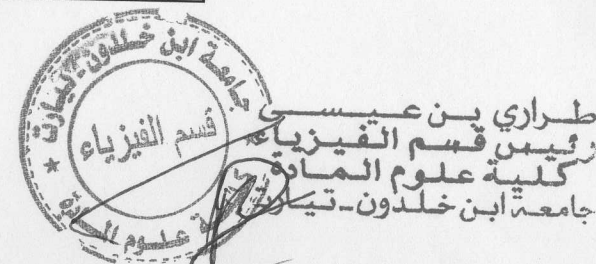 جامعة ابن خلدون - تيارت
قسم الفيزياء
كلية علوم المادة
طراري بن عيسى
رئيس قسم الفيزياء
كلية علوم المادة
جامعة ابن خلدون - تيارت